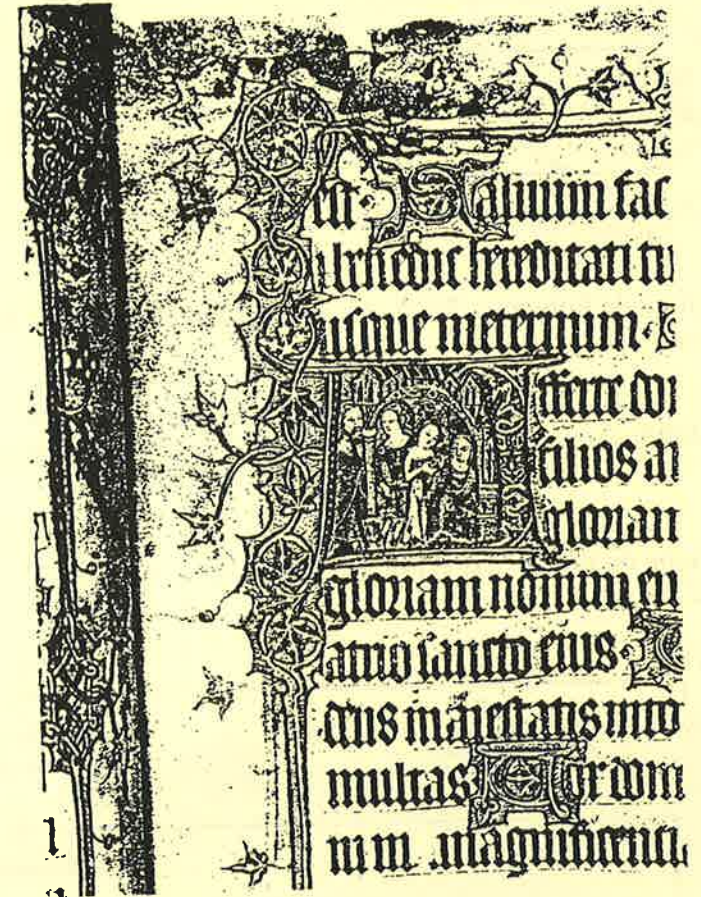 est. Saluum fac
benedic hereditati tu
usque ineternum.
Afferte do
filios ar
gloriam
gloriam nomini eu
atrio sancto eius.
deus maiestatis into
multas Vox dom
magnificenti